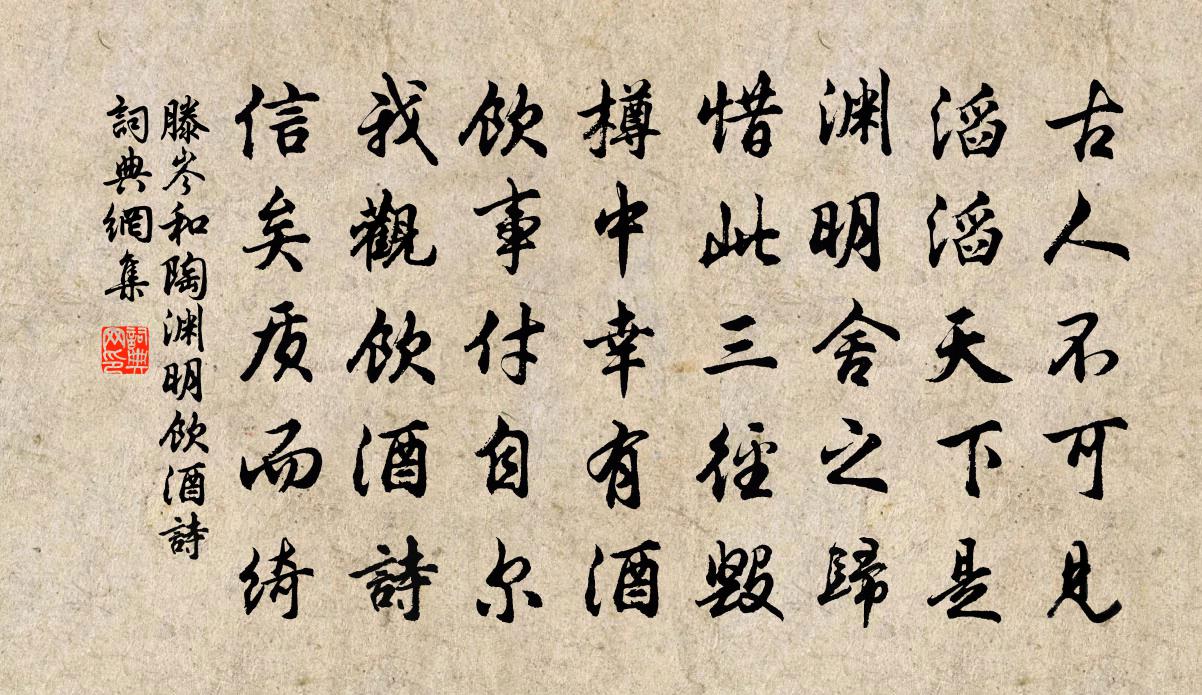 古人不可見
滔滔天下是
渊明舍之歸
惜此三徑毁
樽中幸有酒
飲事付自尔
我觀飲酒詩
信矣质而绮
滕岑和陶渊明飲酒詩
詞典網集
詞典网印